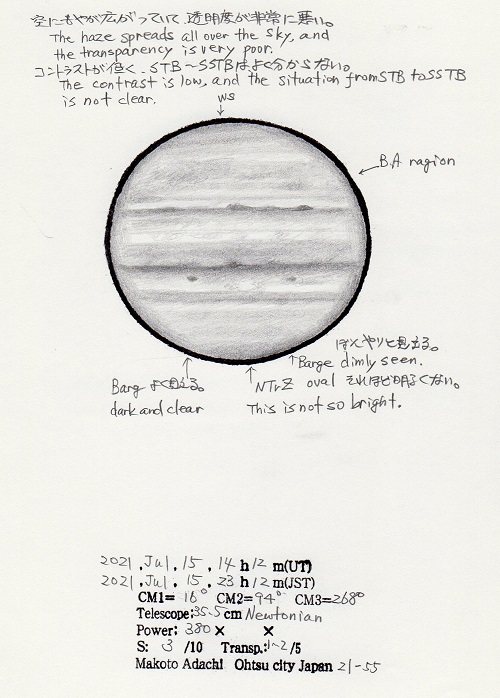 空にもやが広がっていて、透明度が非常に悪い。
The haze spreads all over the sky, and
the transparency is very poor.
コントラストが低く、STB〜SSTBはよく分からない。
The contrast is low, and the situation from STB to SSTB
is not clear.
WS
B.A ragion
ぼんやりと見える。
Barge dimly seen.
Barg よく見える。
dark and clear
NTrZ oval それほど明るくない。
This is not so bright.
2021, Jul, 15, 14 h 12 m(UT)
2021, Jul, 15, 23 h 12 m(JST)
CM1= 16° CM2= 94° CM3= 268°
Telescope: 35.5 cm Newtonian
Power: 380 × ×
S: 3 /10 Transp.: 1~2 /5
Makoto Adachi Ohtsu city Japan 21-55